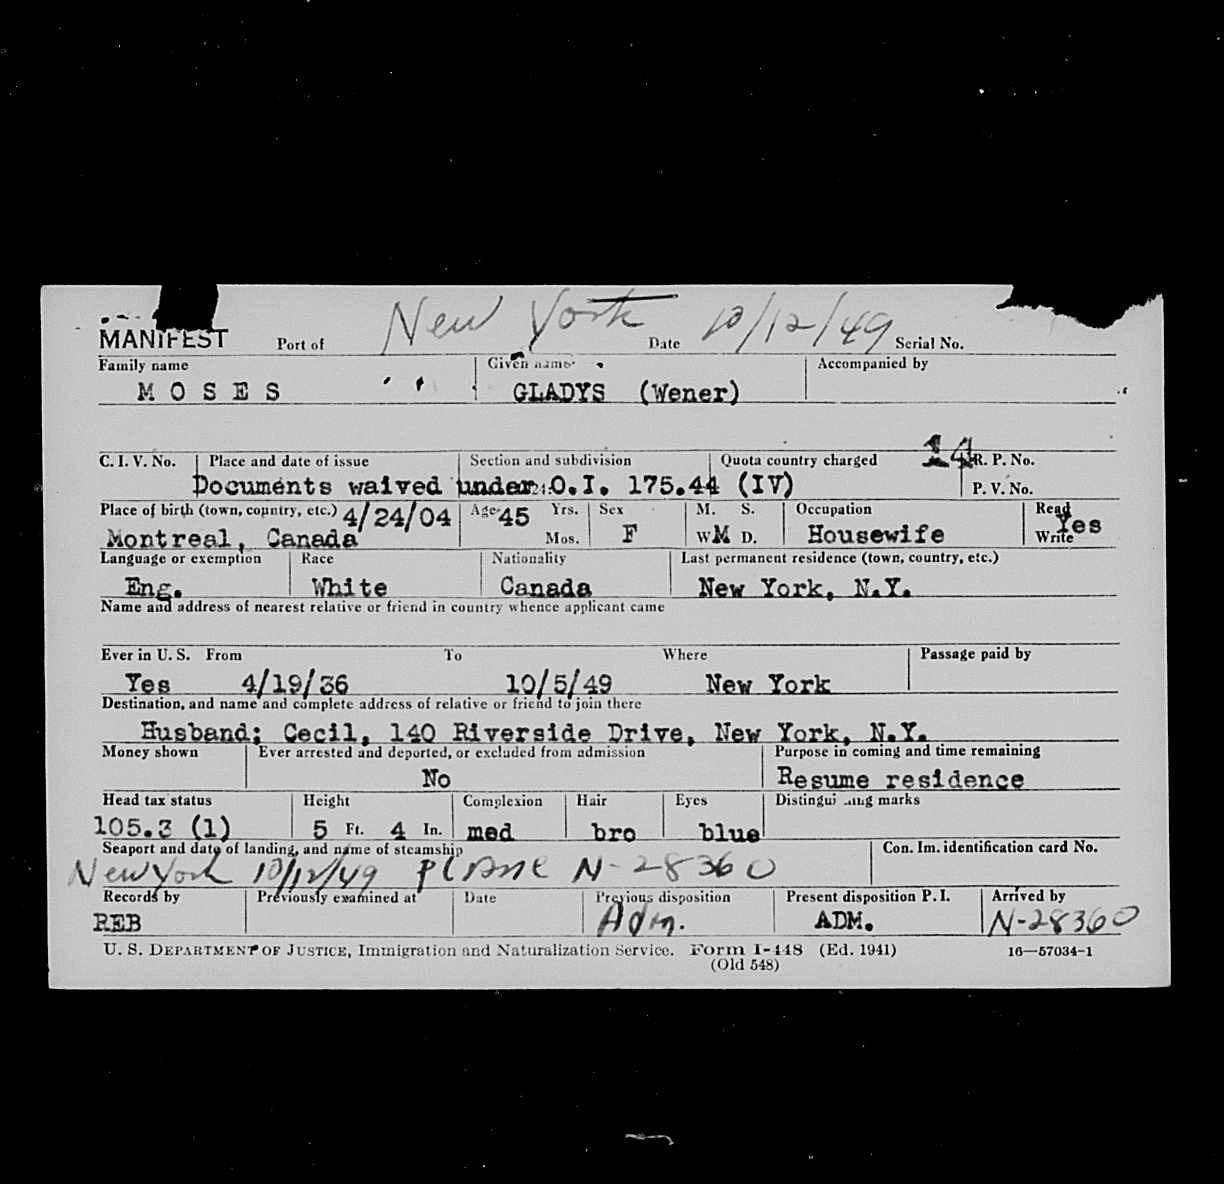 MANIFEST Port of New York Date 10/12/49 Serial No.
Family name Given name Accompanied by
M O S E S GLADYS (Wener)
14
C. I. V. No. Place and date of issue Section and subdivision Quota country charged R. P. No.
Documents waived under O.I. 175.44 (IV) P. V. No.
Place of birth (town, country, etc.) 4/24/04 Age 45 Yrs. Sex M. S. Occupation Read Yes
Montreal, Canada Mos. F W M D. Housewife Write
Language or exemption Race Nationality Last permanent residence (town, country, etc.)
Eng. White Canada New York, N.Y.
Name and address of nearest relative or friend in country whence applicant came
Ever in U. S. From To Where Passage paid by
Yes 4/19/36 10/5/49 New York
Destination, and name and complete address of relative or friend to join there
Husband: Cecil, 140 Riverside Drive, New York, N.Y.
Money shown Ever arrested and deported, or excluded from admission Purpose in coming and time remaining
No Resume residence
Head tax status Height Complexion Hair Eyes Distinguishing marks
105.3 (1) 5 Ft. 4 In. med bro blue
Seaport and date of landing, and name of steamship Con. Im. identification card No.
New York 10/12/49 plane N-28360
Records by Previously examined at Date Previous disposition Present disposition P. I. Arrived by
REB Adm. ADM. N-28360
U. S. DEPARTMENT OF JUSTICE, Immigration and Naturalization Service. Form I-448 (Ed. 1941) 16—57034-1
(Old 548)